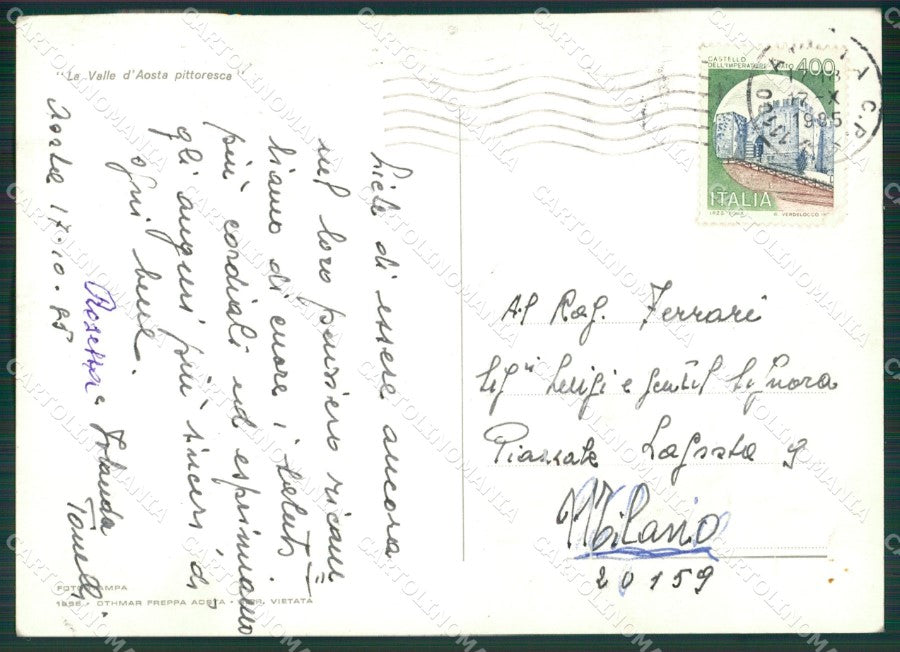 "La Valle d'Aosta pittoresca"
Aosta 17.10.85
Lieti di essere ancora
nel loro pensiero ricam
biamo di cuore i saluti
più cordiali ed esprimiamo
gli auguri più sinceri di
ogni bene.
Rosetta e Iolanda
CASTELLO
DELL'IMPERATORE
400
ITALIA
A.C.P.
X
1985
Al Rag. Ferrari
Luigi e gentil Signora
Piazzale Lagosta 9
Milano
20159
FOTOSTAMPA
OTHMAR FREPPA AOSTA • RIP. VIETATA
CARTOLINOMANIA